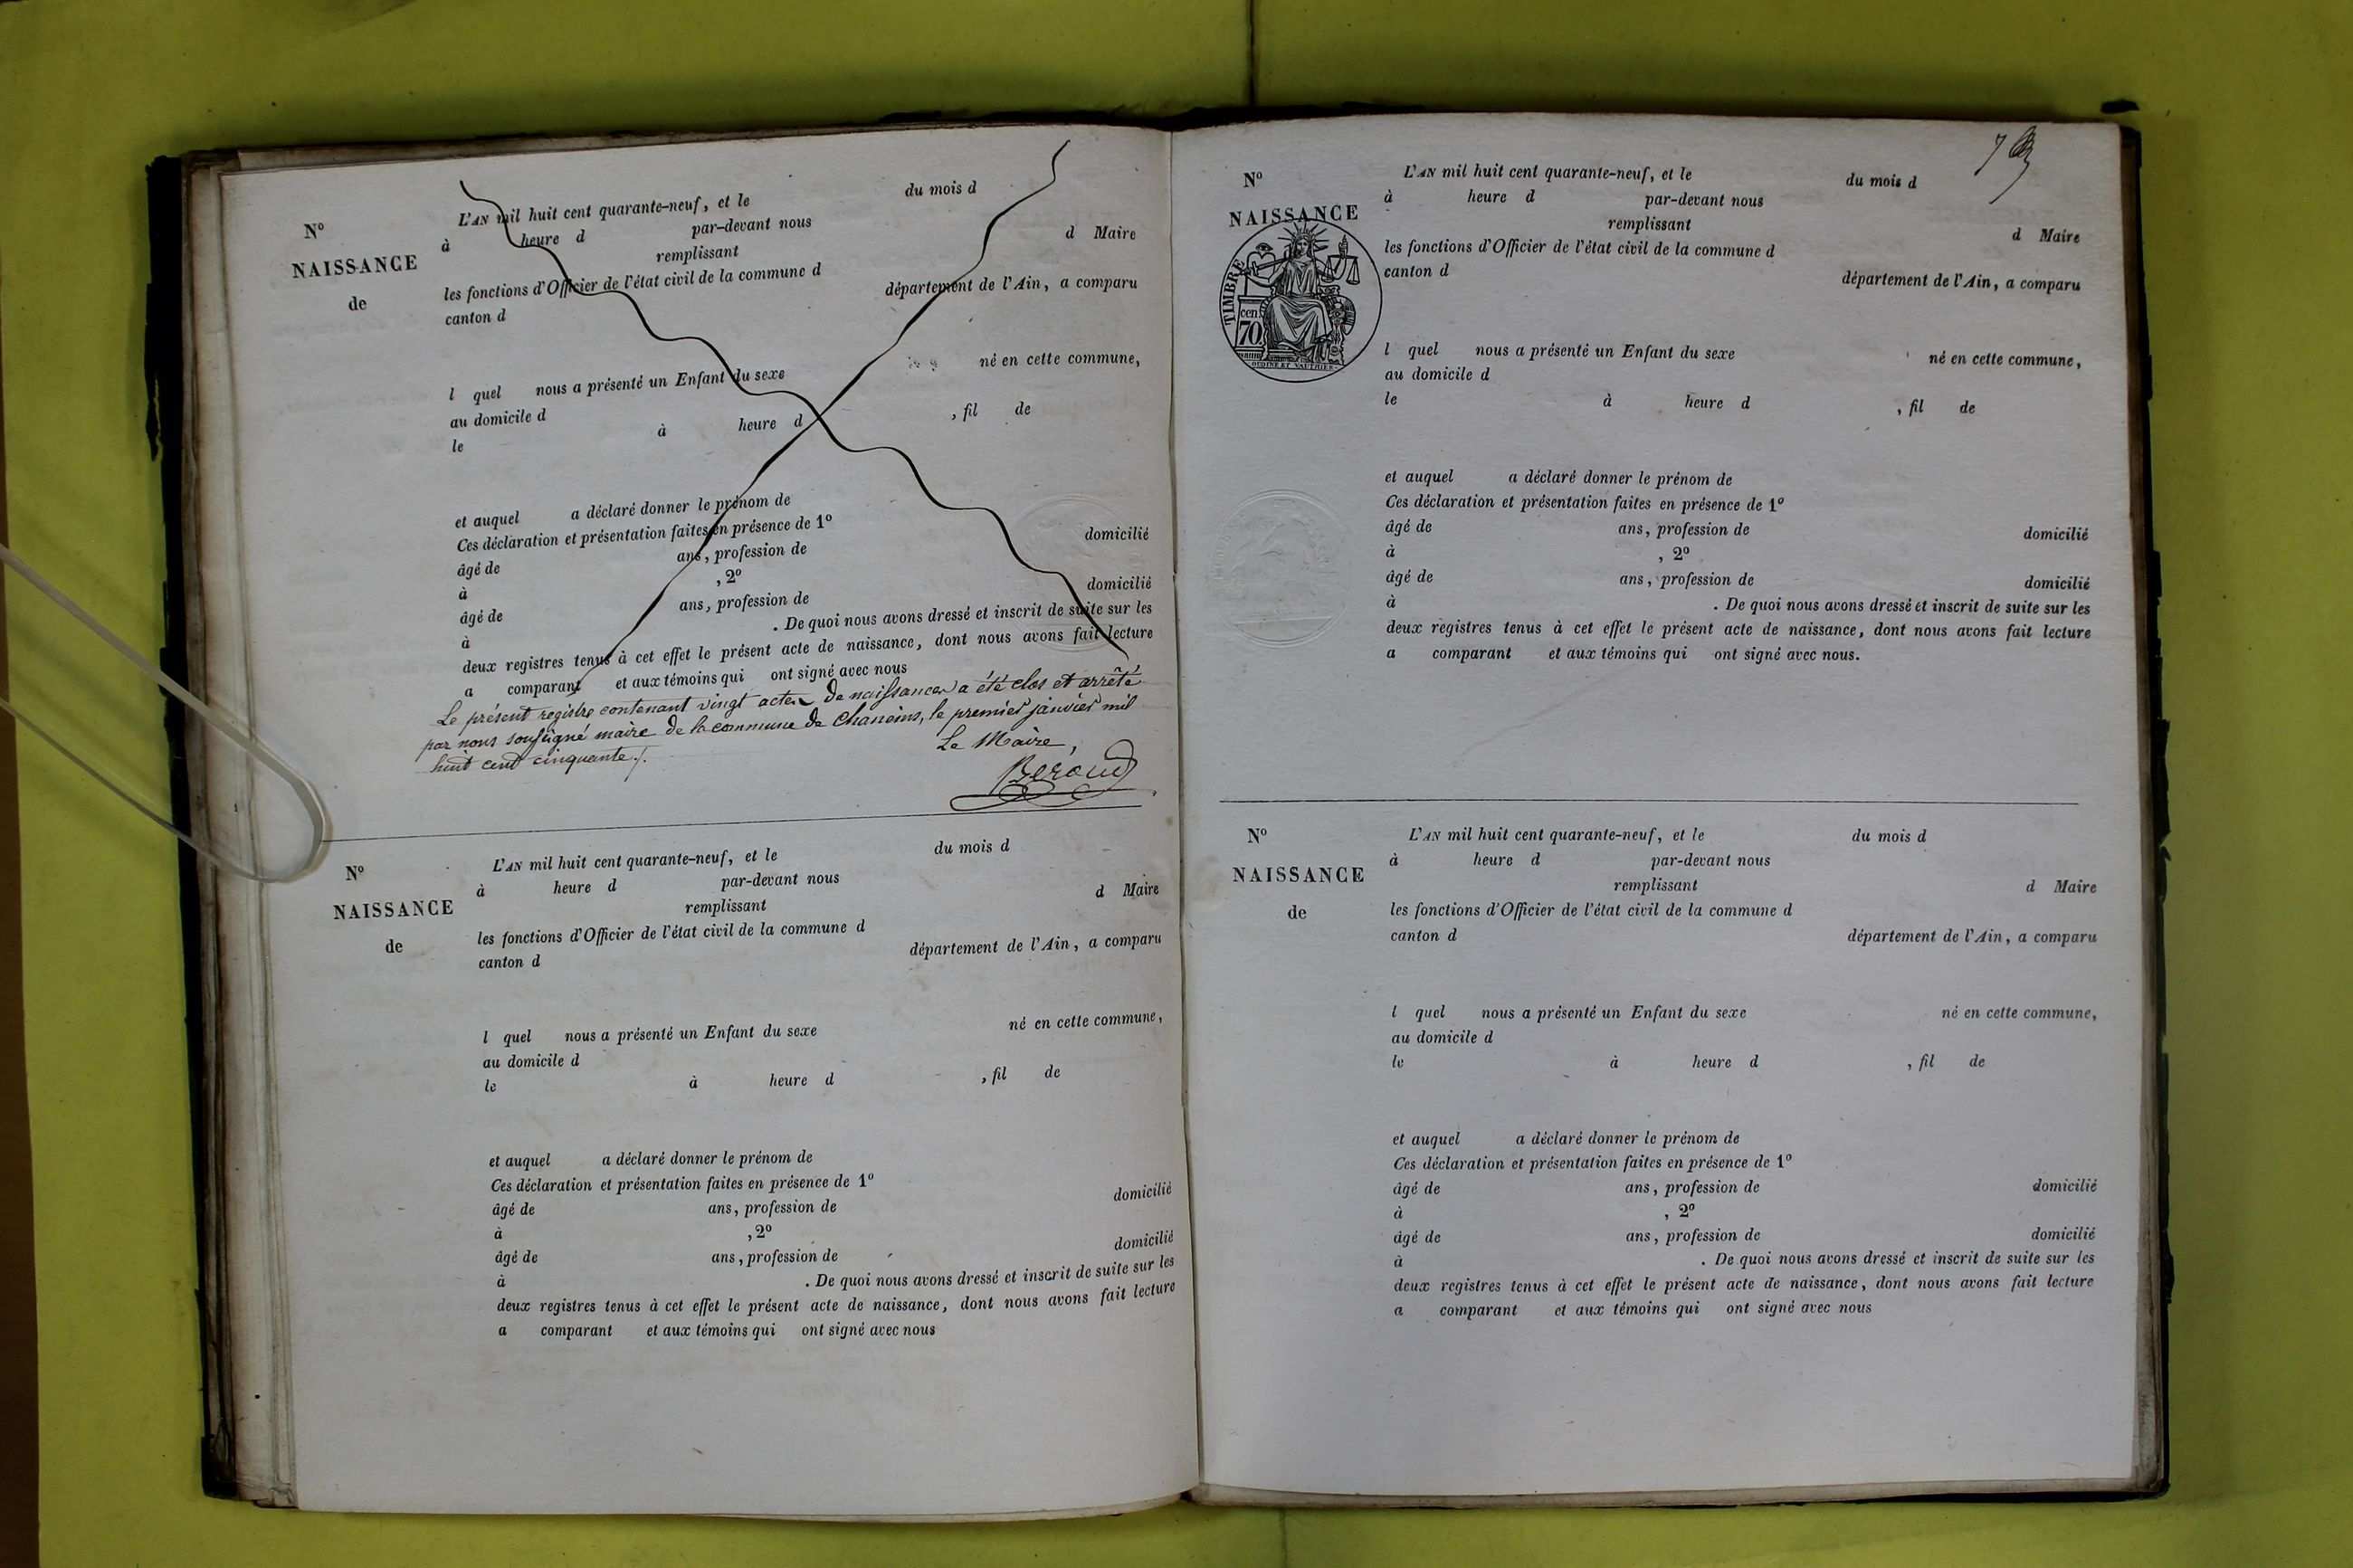 N°
NAISSANCE
de
L'AN mil huit cent quarante-neuf, et le du mois d
à heure d par-devant nous
remplissant d Maire
les fonctions d'Officier de l'état civil de la commune d
canton d département de l'Ain, a comparu
l quel nous a présenté un Enfant du sexe né en cette commune,
au domicile d
le à heure d , fil de
et auquel a déclaré donner le prénom de
Ces déclaration et présentation faites en présence de 1°
âgé de ans, profession de domicilié
à , 2°
âgé de ans, profession de domicilié
à . De quoi nous avons dressé et inscrit de suite sur les
deux registres tenus à cet effet le présent acte de naissance, dont nous avons fait lecture
a comparant et aux témoins qui ont signé avec nous
Le présent registre contenant vingt actes de naissances a été clos et arrêté
par nous soussigné maire de la commune de Chaneins, le premier janvier mil
huit cent cinquante.
Le Maire,
Beroud
N°
NAISSANCE
de
L'AN mil huit cent quarante-neuf, et le du mois d
à heure d par-devant nous
remplissant d Maire
les fonctions d'Officier de l'état civil de la commune d
canton d département de l'Ain, a comparu
l quel nous a présenté un Enfant du sexe né en cette commune,
au domicile d
le à heure d , fil de
et auquel a déclaré donner le prénom de
Ces déclaration et présentation faites en présence de 1°
âgé de ans, profession de domicilié
à , 2°
âgé de ans, profession de domicilié
à . De quoi nous avons dressé et inscrit de suite sur les
deux registres tenus à cet effet le présent acte de naissance, dont nous avons fait lecture
a comparant et aux témoins qui ont signé avec nous
7
N°
NAISSANCE
TIMBRE
cen.
70
L'AN mil huit cent quarante-neuf, et le du mois d
à heure d par-devant nous
remplissant d Maire
les fonctions d'Officier de l'état civil de la commune d
canton d département de l'Ain, a comparu
l quel nous a présenté un Enfant du sexe né en cette commune,
au domicile d
le à heure d , fil de
et auquel a déclaré donner le prénom de
Ces déclaration et présentation faites en présence de 1°
âgé de ans, profession de domicilié
à , 2°
âgé de ans, profession de domicilié
à . De quoi nous avons dressé et inscrit de suite sur les
deux registres tenus à cet effet le présent acte de naissance, dont nous avons fait lecture
a comparant et aux témoins qui ont signé avec nous.
N°
NAISSANCE
de
L'AN mil huit cent quarante-neuf, et le du mois d
à heure d par-devant nous
remplissant d Maire
les fonctions d'Officier de l'état civil de la commune d
canton d département de l'Ain, a comparu
l quel nous a présenté un Enfant du sexe né en cette commune,
au domicile d
le à heure d , fil de
et auquel a déclaré donner le prénom de
Ces déclaration et présentation faites en présence de 1°
âgé de ans, profession de domicilié
à , 2°
âgé de ans, profession de domicilié
à . De quoi nous avons dressé et inscrit de suite sur les
deux registres tenus à cet effet le présent acte de naissance, dont nous avons fait lecture
a comparant et aux témoins qui ont signé avec nous